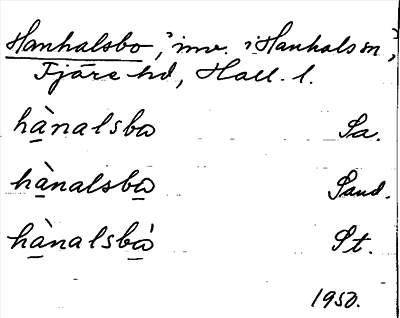 Hanhalsbo, "inv. i Hanhals sn",
Fjäre hd, Hall. l.
hànalsbo Sa.
hànalsbo Sand.
hànalsbó St.
1950.